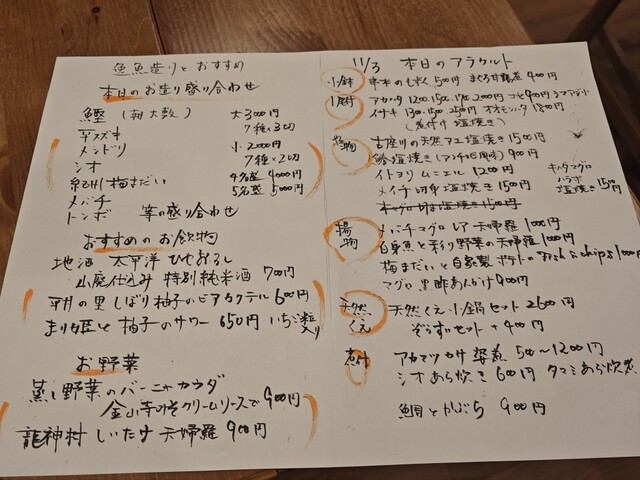 魚魚造りとおすすめ
本日のお造り盛り合わせ
鰹 (朝大敷) 大3000円
平スズキ 7種×3切
メンドリ 小2000円
シオ 7種×2切
紀州梅まだい 4名盛 4000円
メバチ 5名盛 5000円
トンボ 等の盛り合わせ
おすすめのお飲物
地酒 太平洋 ひやおろし
山廃仕込み 特別純米酒 700円
平井の里しぼり柚子のビアカクテル 600円
まり姫と柚子のサワー 650円 いちご粒入り
お野菜
蒸し野菜のバーニャカウダ
金山寺みそクリームソースで900円
龍神村 しいたけ 天婦羅 900円
11/3 本日のアラカルト
小鉢 串本のもずく 500円 まぐろ甘露煮 400円
1尾付 アカハタ 1200.1500.1700.2000円
イサキ 1800円
(煮付け 塩焼き)
焼物 古座川の天然アユ塩焼き 1500円
塩焼き 900円
イトヨリ ムニエル 1200円
メイチ切身塩焼き 1500円
キハダマグロ ハラボ 塩焼き 1500円
本マグロ 塩焼き 1500円
揚物 メバチマグロ レア天婦羅 1000円
白身魚と彩り野菜の天婦羅 1000円
梅まだいと自家製ポテトのFish & chips 1000
マグロ黒酢あんかけ 900円
天然くえ 天然くえ小鍋セット 2600円
ぞうすいセット +400円
煮付 アカマツカサ 姿煮 500〜1200円
シオあら炊き 600円 タマミあら炊き
鯛とかぶら 900円